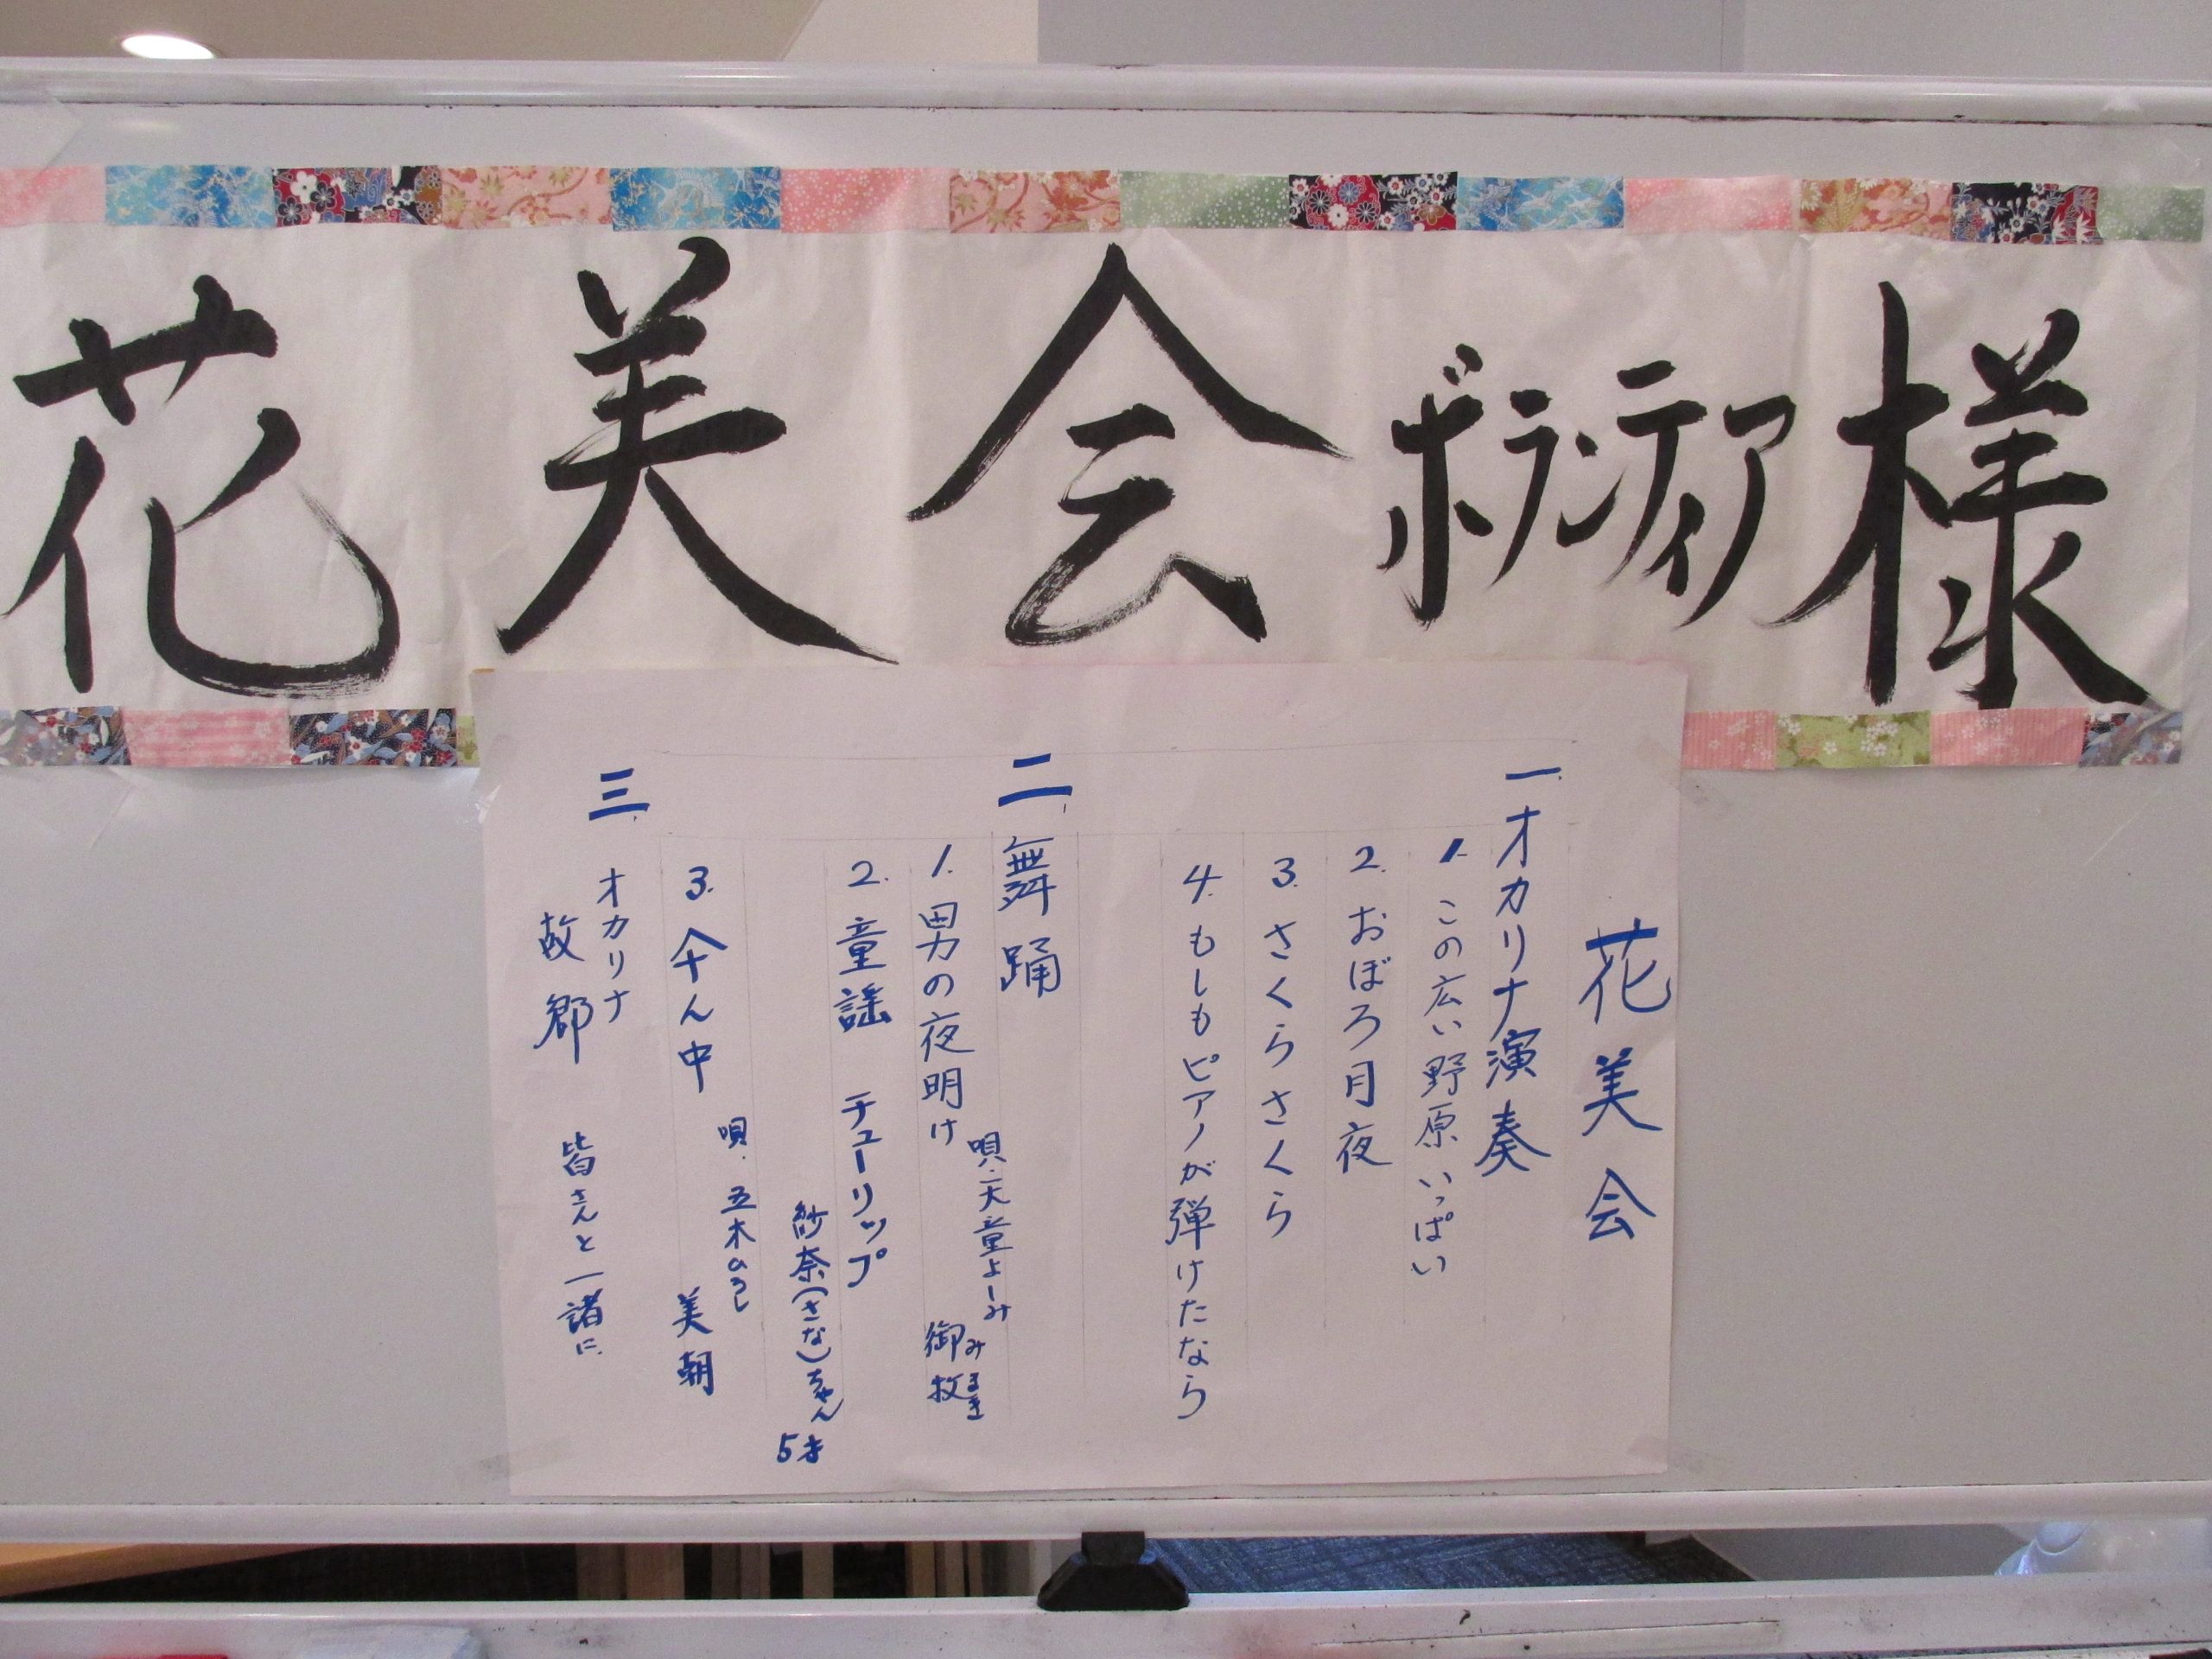 花美会ボランティア様
花美会
一、オカリナ演奏
1. この広い野原いっぱい
2. おぼろ月夜
3. さくらさくら
4. もしもピアノが弾けたなら
二、舞踊
唄・天童よしみ
1. 男の夜明け 御牧 みまき
2. 童謡 チューリップ
紗奈(さな)ちゃん 5才
唄・五木ひろし
3. 傘ん中 美朝
三、オカリナ
故郷 皆さんと一諸に